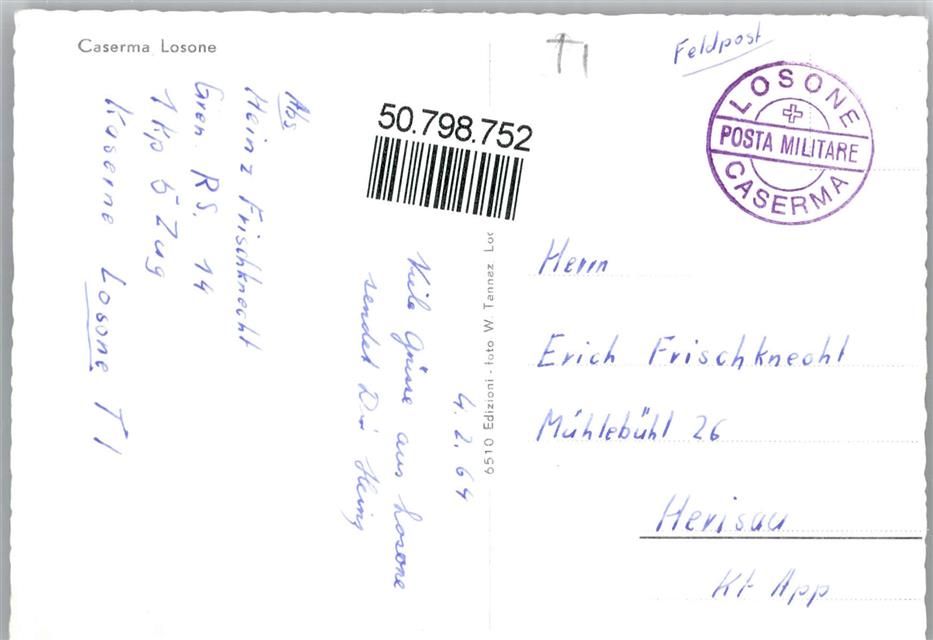 Caserma Losone
TI
Feldpost
LOSONE
POSTA MILITARE
CASERMA
50.798.752
Abs
Heinz Frischknecht
Gren. RS. 14
1 Kp 5 Zug
Kaserne Losone TI
4. 2. 64
Viele Grüsse aus Losone
sendet Dir Heinz
6510 Edizioni - foto W. Tannaz, Loc
Herrn
Erich Frischknecht
Mühlebühl 26
Herisau
Kt App